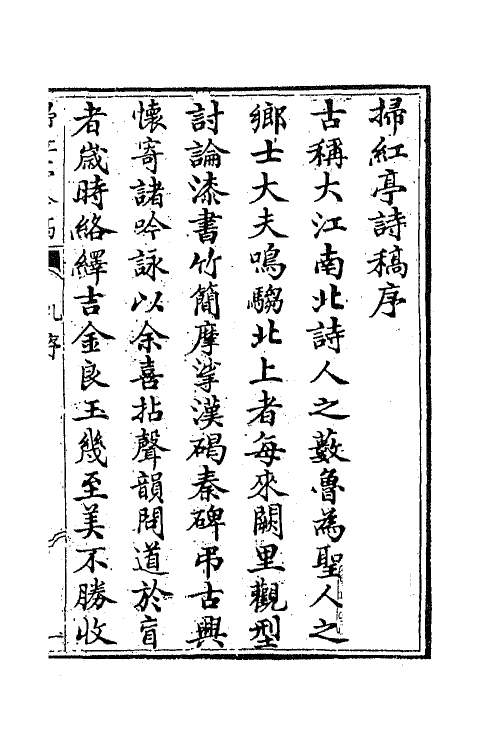 掃紅亭詩稿序
古稱大江南北詩人之藪魯為聖人之
鄉士大夫鳴騶北上者每來闕里觀型
討論漆書竹簡摩挲漢碣秦碑弔古興
懷寄諸吟詠以余喜拈聲韻問道於盲
者歲時絡繹吉金良玉幾至美不勝收